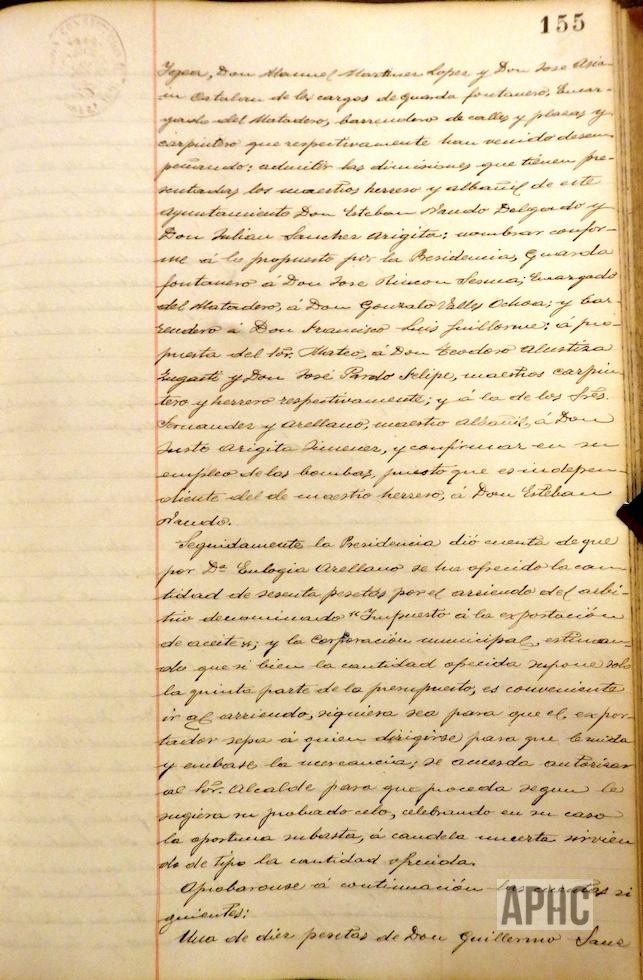 155
Don Manuel Martinez Lopez y Don Jose Asia-
in Catalan de los cargos de guarda fontanero, Encar-
gado del Matadero, barrendero de calles y plazas y
carpintero que respectivamente han venido desem
peñando: admitir las dimisiones que tienen pre-
sentadas los maestros herrero y albañil de este
Ayuntamiento Don Esteban Delgado y
Don Julian Sanchez Arigita: nombrar confor-
me á lo propuesto por la Presidencia, Guarda
fontanero á Don Jose Rincon Sesma; Encargado
del Matadero, á Don Gonzalo Valles Ochoa; y bar-
rendero á Don Francisco Luis Guillorme: á pro-
puesta del Sor. Mateo, á Don Teodoro Alustiza
Zugasti y Don José Pardo Felipe, maestros carpin-
tero y herrero respectivamente; y á la de los Sres.
Fernandez y Arellano, maestro Albañil, á Don
Justo Arigita Jimenez, y confirmar en su
empleo de las bombas, puesto que es indepen-
diente del de maestro herrero, á Don Esteban

Seguidamente la Presidencia dió cuenta de que
por Dª Eulogia Arellano se ha ofrecido la can-
tidad de sesenta pesetas por el arriendo del arbi-
trio denominado "Impuesto á la exportación
de aceites"; y la Corporación municipal, estiman-
do que si bien la cantidad ofrecida supone solo
la quinta parte de la presupuesto, es conveniente
ir al arriendo, siquiera sea para que el expor-
tador sepa á quien dirigirse para que le mida
y embase la mercancia; se acuerda autorizar
al Sor. Alcalde para que proceda segun le
sugiera su probado celo, celebrando en su caso
la oportuna subasta, á candela muerta sirvien
do de tipo la cantidad ofrecida.
Aprobaronse á continuación las cuentas si
guientes:
Una de diez pesetas de Don Guillermo Sanz
APHC